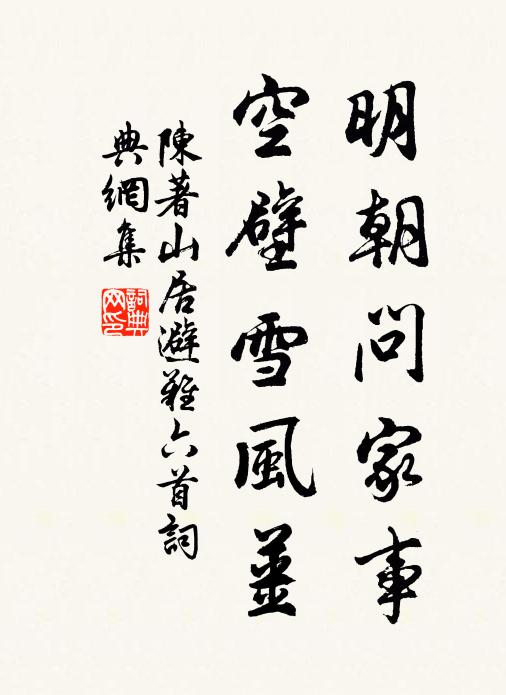 明朝問家事
空壁雪風薑
陳著山居避難六首詞
典網集
詞典
网印